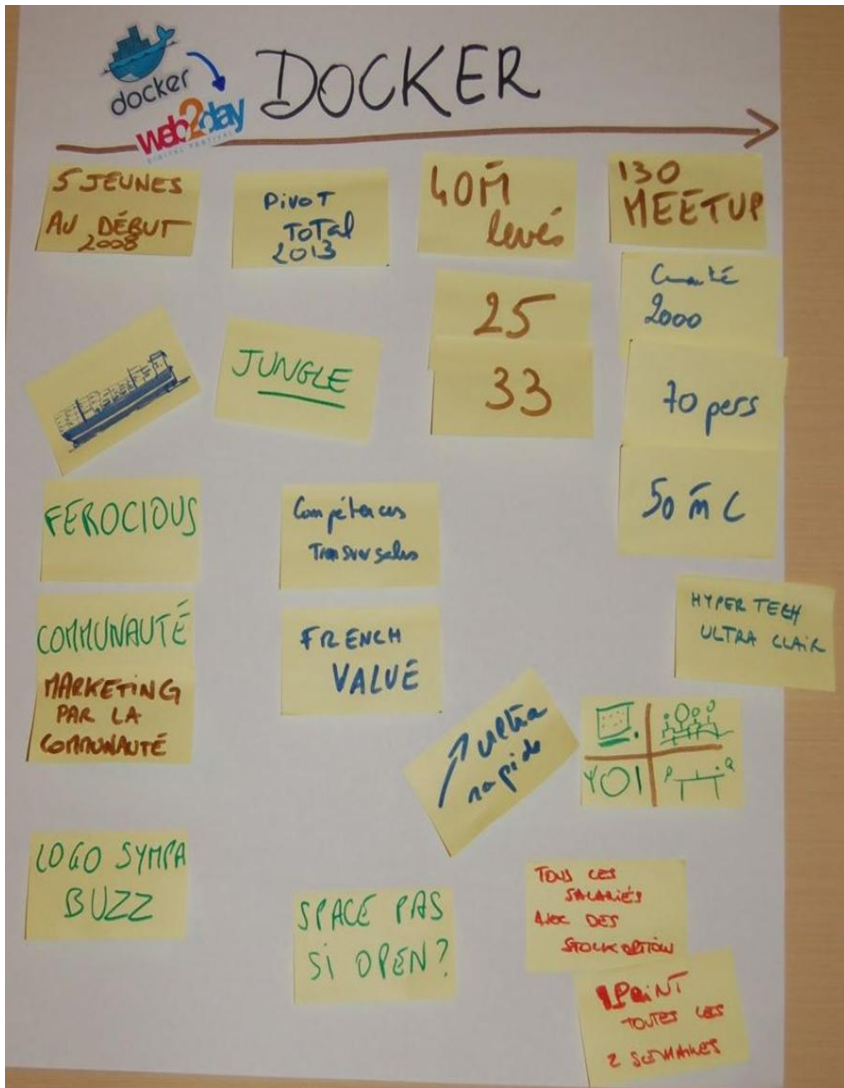 docker
web2day
DIGITAL FESTIVAL
DOCKER
5 JEUNES
AU DÉBUT
2008
PIVOT
TOTAL
2013
40M
levés
130
MEETUP
25
2000
33
JUNGLE
70 pers
50 M €
FEROCIOUS
Compétences
Transversales
COMMUNAUTÉ
MARKETING
PAR LA
COMMUNAUTÉ
FRENCH
VALUE
HYPER TECH
ULTRA CLAIR
ultra
rapide
LOGO SYMPA
BUZZ
SPACE PAS
SI OPEN?
TOUS LES
SALARIÉS
AVEC DES
STOCK OPTION
TOUTES LES
2 SEMAINES